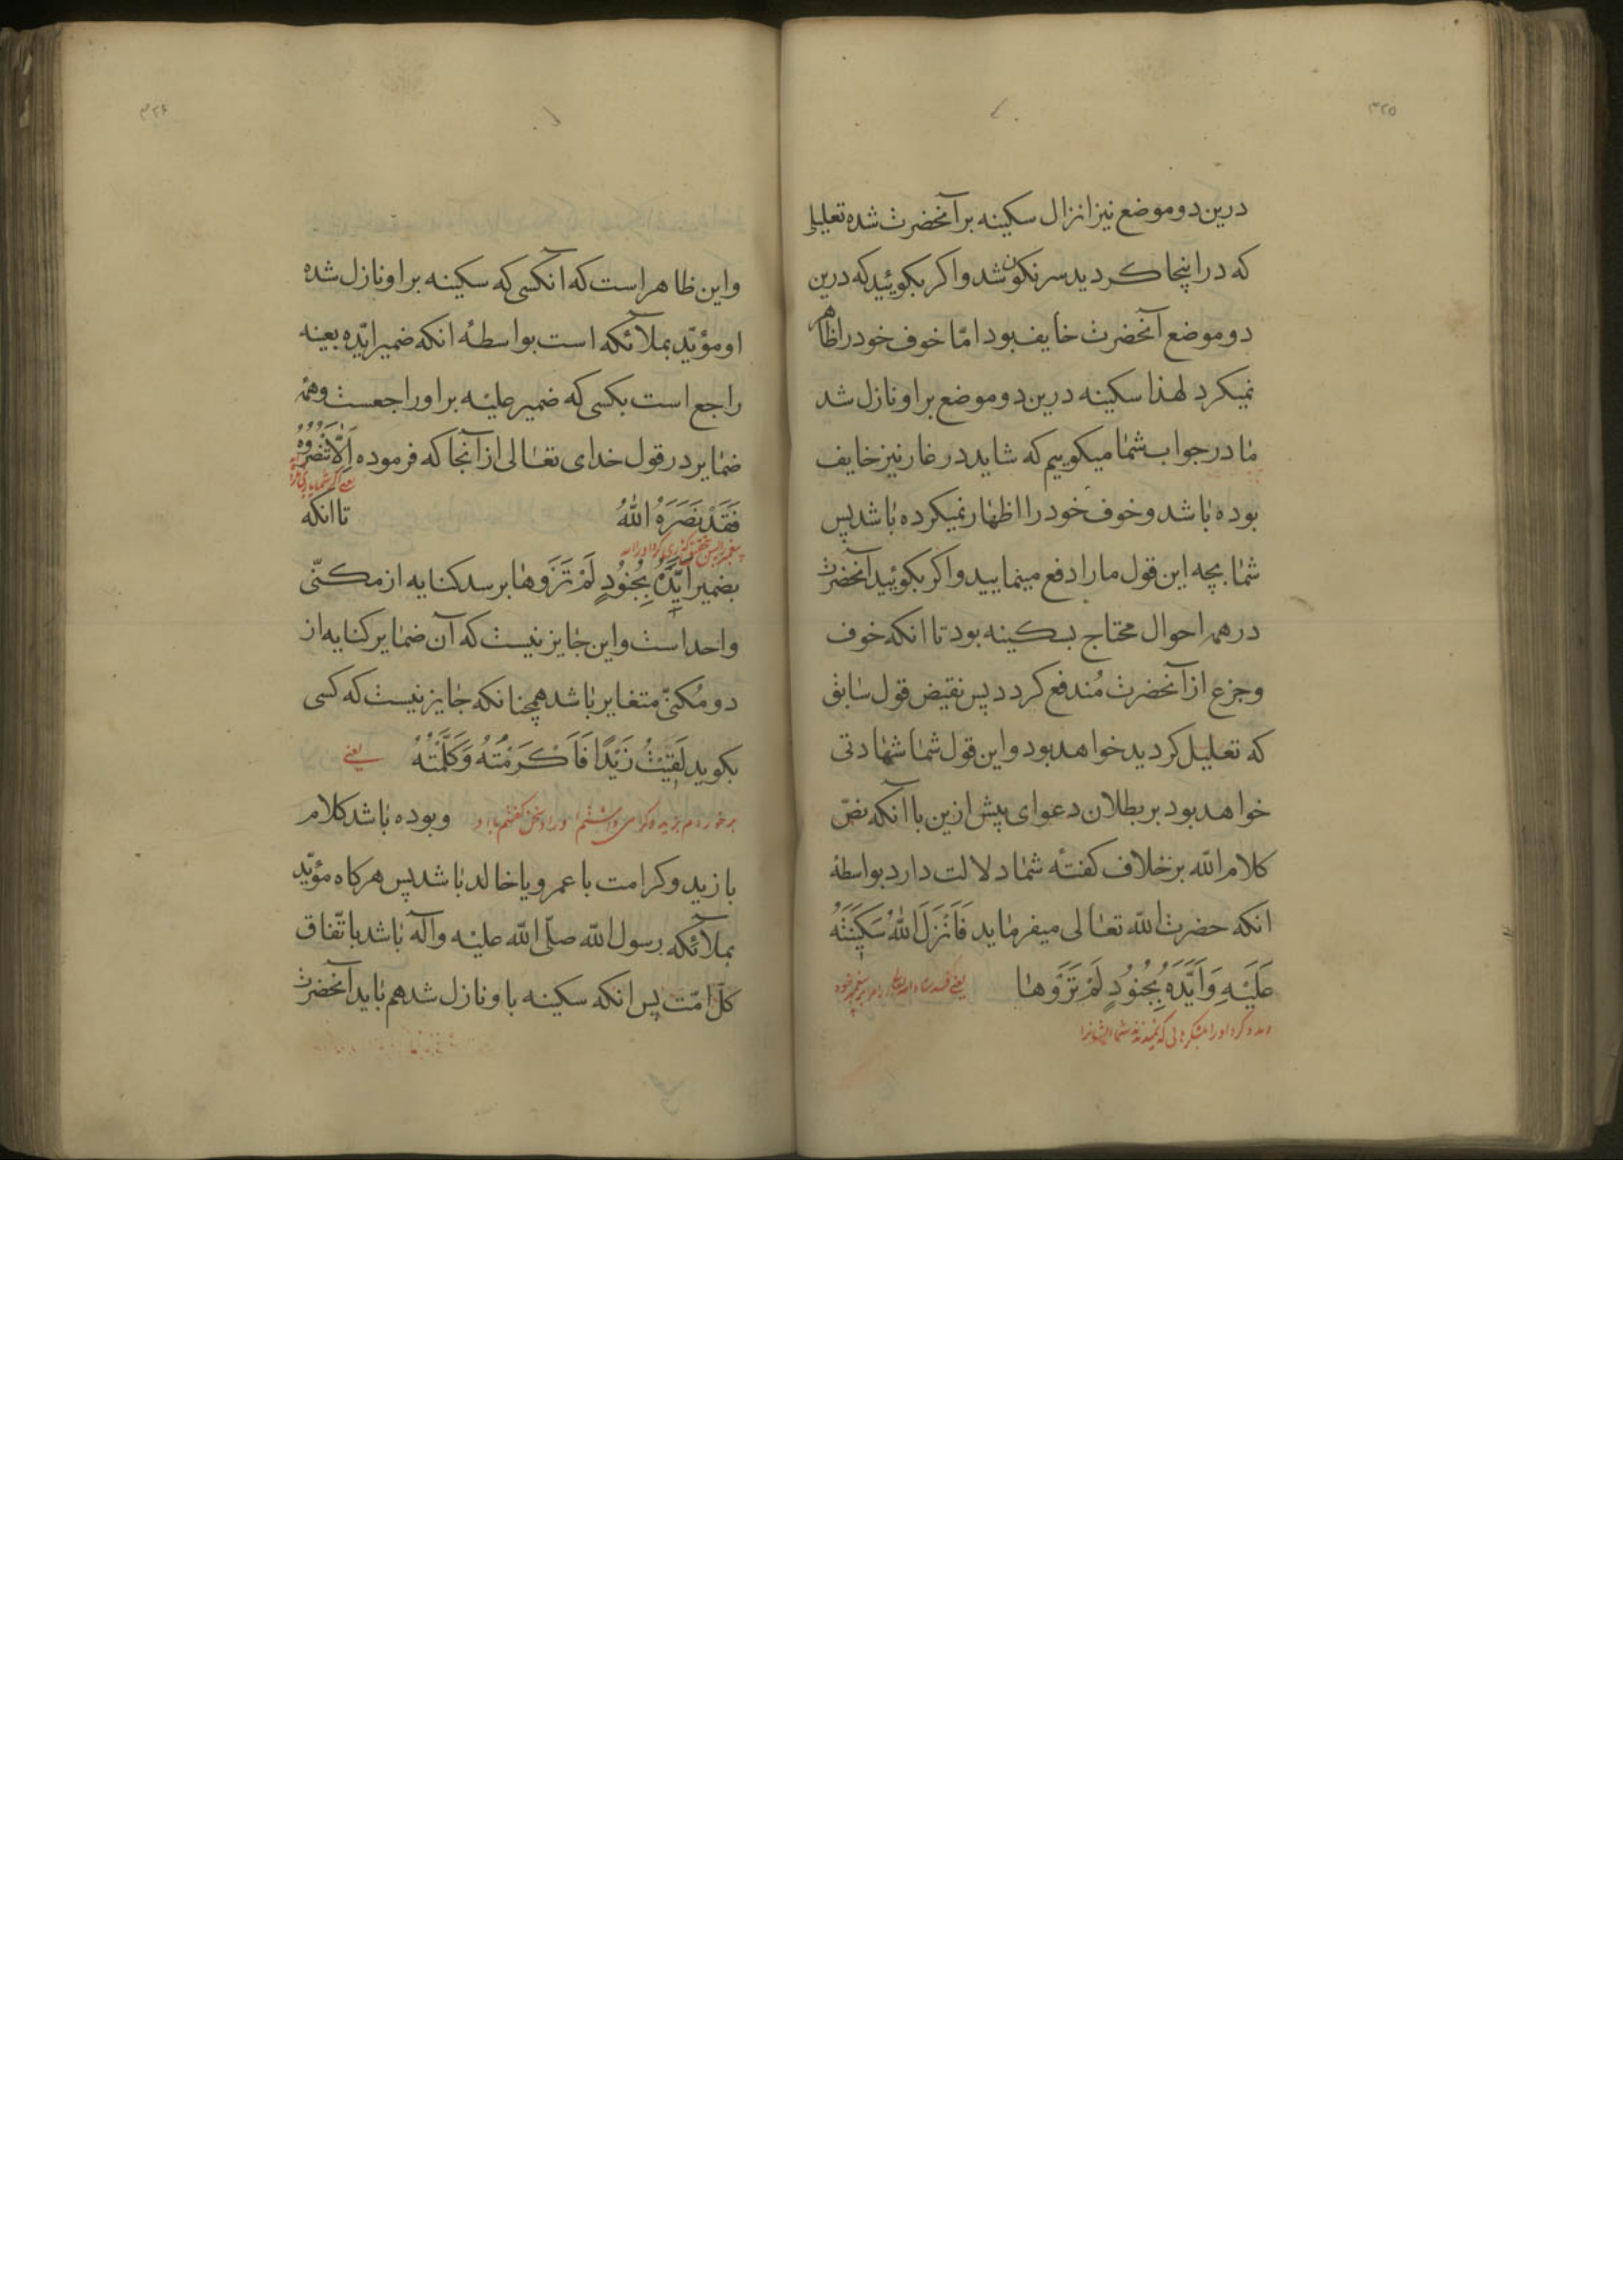 ۳۲۵
درین دو موضع نیز انزال سکینه بر آنحضرت شده تعلیلی
که در اینجا کردید سرنکون شد و اکر بکوئید که درین
دو موضع آنحضرت خایف بود امّا خوف خود را ظاهر
نمیکرد لهذا سکینه درین دو موضع بر او نازل شد
ما در جواب شما میکوییم که شاید در غار نیز خایف
بوده باشد و خوف خود را اظهار نمیکرده باشد پس
شما بچه این قول ما را دفع مینمایید و اکر بکوئید آنحضرت
در همه احوال محتاج بسکینه بود تا انکه خوف
و جزع از آنحضرت مُندفع کردد پس نقیض قول سابق
که تعلیل کردید خواهد بود و این قول شما شهادتی
خواهد بود بر بطلان دعوای پیش ازین با آنکه نصّ
کلام اللّه بر خلاف کفتهٔ شما دلالت دارد بواسطهٔ
انکه حضرت اللّه تعالی میفرماید فَاَنْزَلَ اللّٰهُ سَکٖینَتَهُ
عَلَیْهِ وَاَیَّدَهُ بِجُنُودٍ لَمْ تَرَوْهَا یعنی
کرد او را بلشکرهایی که نمیدیدند شما ایشانرا
۳۲۶
و این ظاهر است که آنکسی که سکینه بر او نازل شده
او مؤیّد بملآئکه است بواسطهٔ انکه ضمیر ایّده بعینه
راجع است بکسی که ضمیر علیه بر او راجعست و همه
ضمایر در قول خدای تعالی از آنجا که فرموده اِلَّا تَنْصُرُوهُ
فَقَدْ نَصَرَهُ اللّٰهُ تا انکه
بضمیر اَیَّدَهُ بِجُنُودٍ لَمْ تَرَوْهَا برسد کنایه از مکنّی
واحد است و این جایز نیست که آن ضمایر کنایه از
دو مُکنّی متغایر باشد همچنانکه جایز نیست که کسی
بکوید لَقٖیتُ زَیْدًا فَاَکْرَمْتُهُ وَکَلَّمْتُهُ یعنی
برخوردم بزید و کرامی داشتم او را و سخن کفتم با او و بوده باشد کلام
با زید و کرامت با عمرو یا خالد باشد پس هرکاه مؤیّد
بملآئکه رسول اللّه صلّی اللّه علیه وآله باشد باتّفاق
کلّ امّت پس انکه سکینه باو نازل شد هم باید آنحضرت